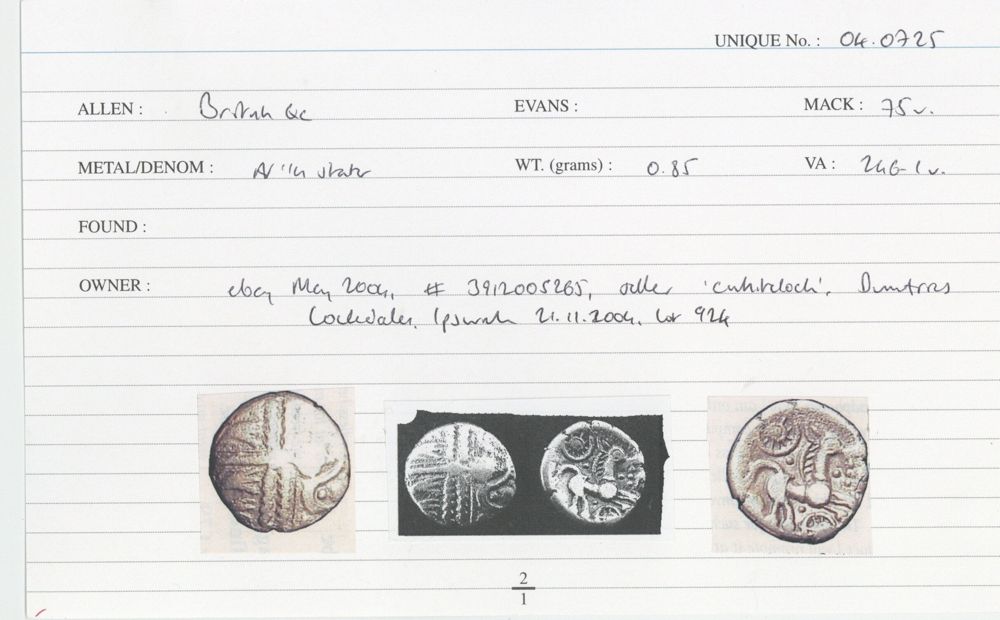 UNIQUE No. : 04.0725
ALLEN : British Qc EVANS : MACK : 75v.
METAL/DENOM : AV 1/4 stater WT. (grams) : 0.85 VA : 246-1v.
FOUND :
OWNER : ebay May 2004, # 3912005265, seller
Cockdales, Ipswich 21.11.2004, lot 924
2
1